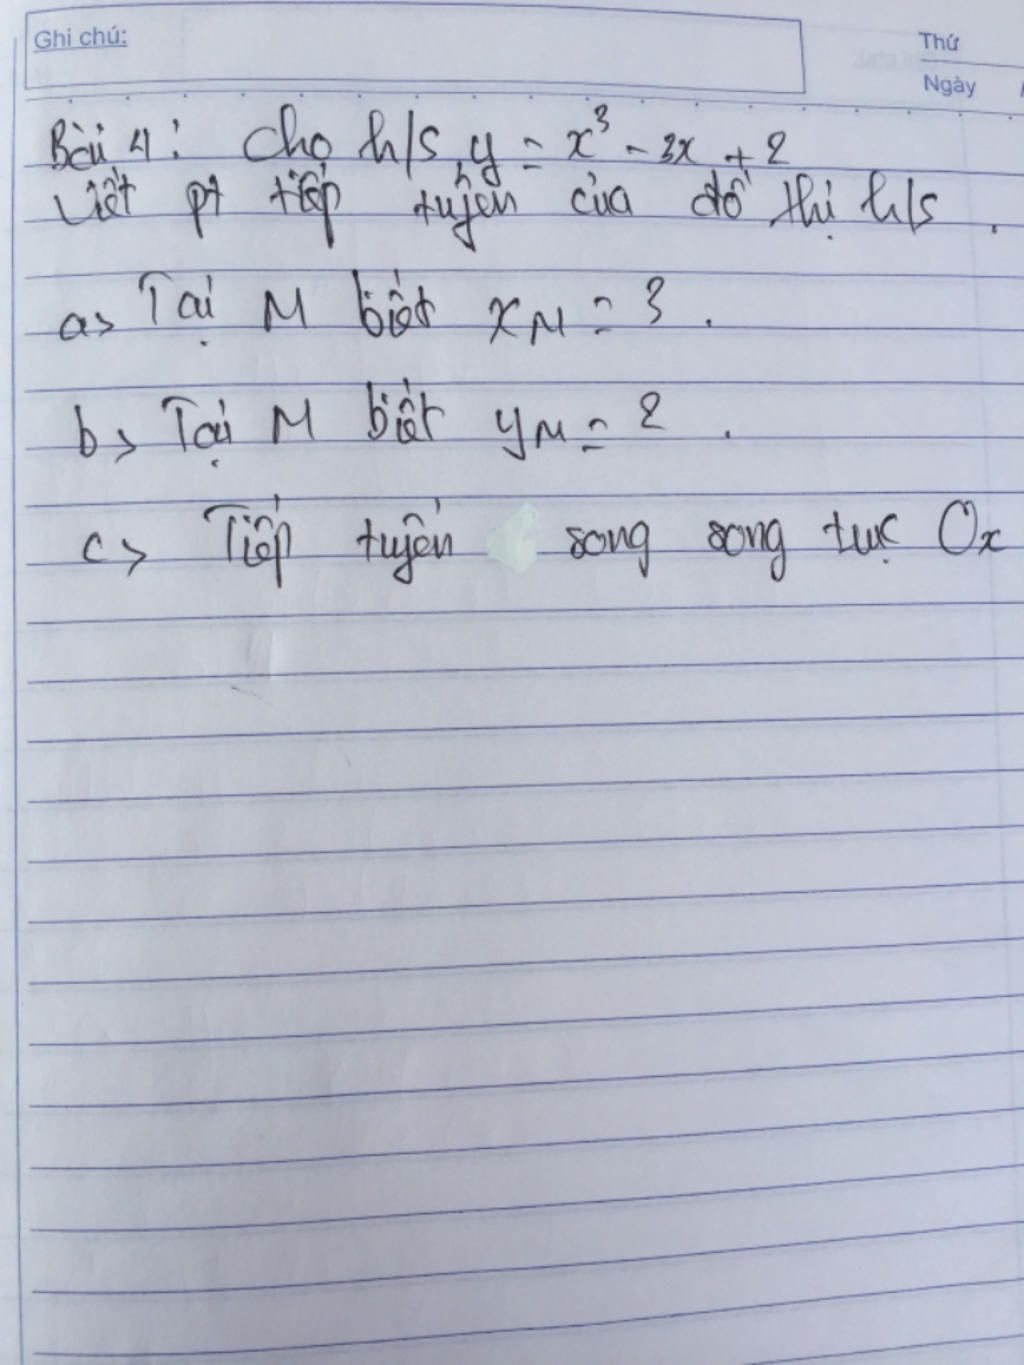 Ghi chú:
Thứ
Ngày
Bài 4: Cho h/s y = x³ - 3x + 2
Viết pt tiếp tuyến của đồ thị h/s.
a> Tại M biết xM = 3.
b> Tại M biết yM = 2.
c> Tiếp tuyến song song trục Ox